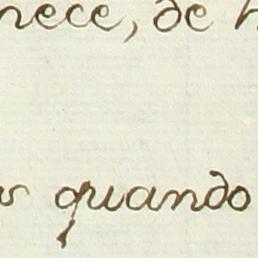 nece, de
quando